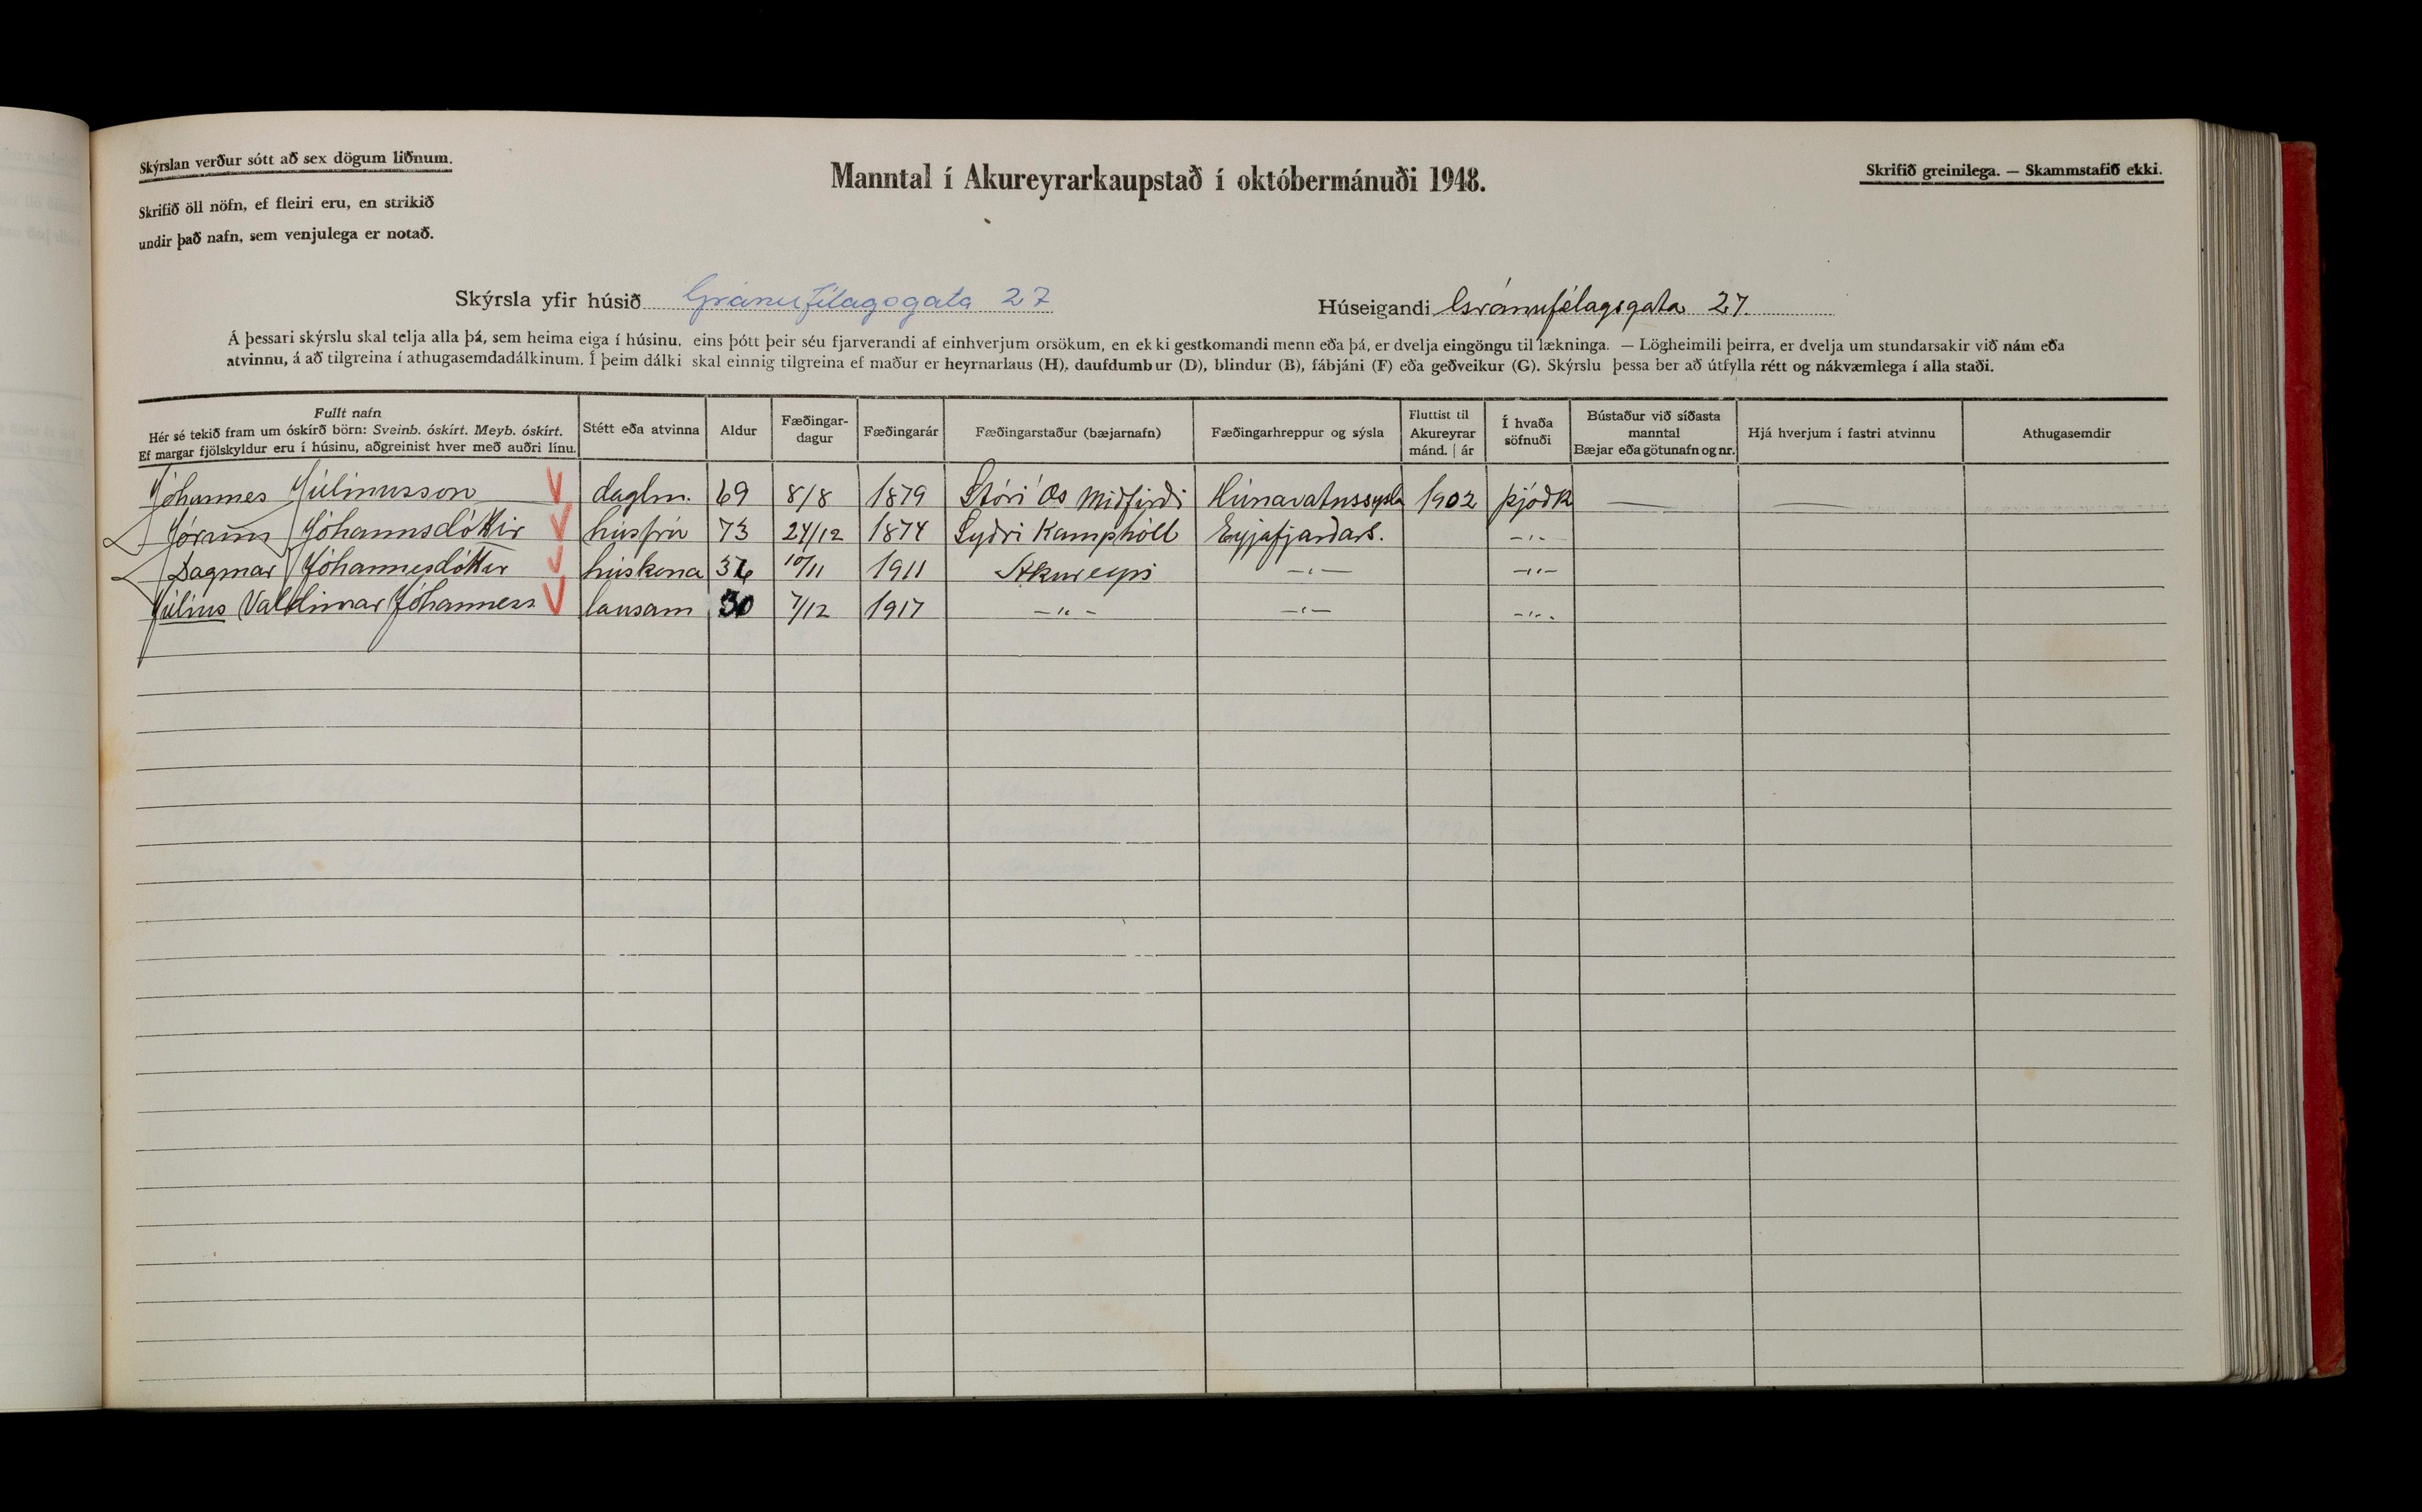 Skýrslan verður sótt að sex dögum liðnum.
Skrifið öll nöfn, ef fleiri eru, en strikið
undir það nafn, sem venjulega er notað.
Manntal í Akureyrarkaupstað í októbermánuði 1948.
Skrifið greinilega. — Skammstafið ekki.
Skýrsla yfir húsið Gránufélagsgata 27
Húseigandi Gránufélagsgata 27.
Á þessari skýrslu skal telja alla þá, sem heima eiga í húsinu, eins þótt þeir séu fjarverandi af einhverjum orsökum, en ekki gestkomandi menn eða þá, er dvelja eingöngu til lækninga. — Lögheimili þeirra, er dvelja um stundarsakir við nám eða
atvinnu, á að tilgreina í athugasemdadálkinum. Í þeim dálki skal einnig tilgreina ef maður er heyrnarlaus (H), daufdumbur (D), blindur (B), fábjáni (F) eða geðveikur (G). Skýrslu þessa ber að útfylla rétt og nákvæmlega í alla staði.
Fullt nafn
Hér sé tekið fram um óskírð börn: Sveinb. óskírt. Meyb. óskírt.
Ef margar fjölskyldur eru í húsinu, aðgreinist hver með auðri línu.
Stétt eða atvinna
Aldur
Fæðingar-
dagur
Fæðingarár
Fæðingarstaður (bæjarnafn)
Fæðingarhreppur og sýsla
Fluttist til
Akureyrar
mánd. | ár
Í hvaða
söfnuði
Bústaður við síðasta
manntal
Bæjar eða götunafn og nr.
Hjá hverjum í fastri atvinnu
Athugasemdir
Jóhannes Júlinusson V daglm. 69 8/8 1879 Stóri Ós Miðfirði Húnavatnssysla 1902 þjóðk — —
Jórunn Jóhannsdóttir V húsfrú 73 24/12 1874 Syðri Kamphóll Eyjafjarðars. -"-
Dagmar Jóhannesdóttir V húskona 36 10/11 1911 Akureyri -"- -"-
Júlíus Valdimar Jóhanness V lausam 30 7/12 1917 -"- -"- -"-